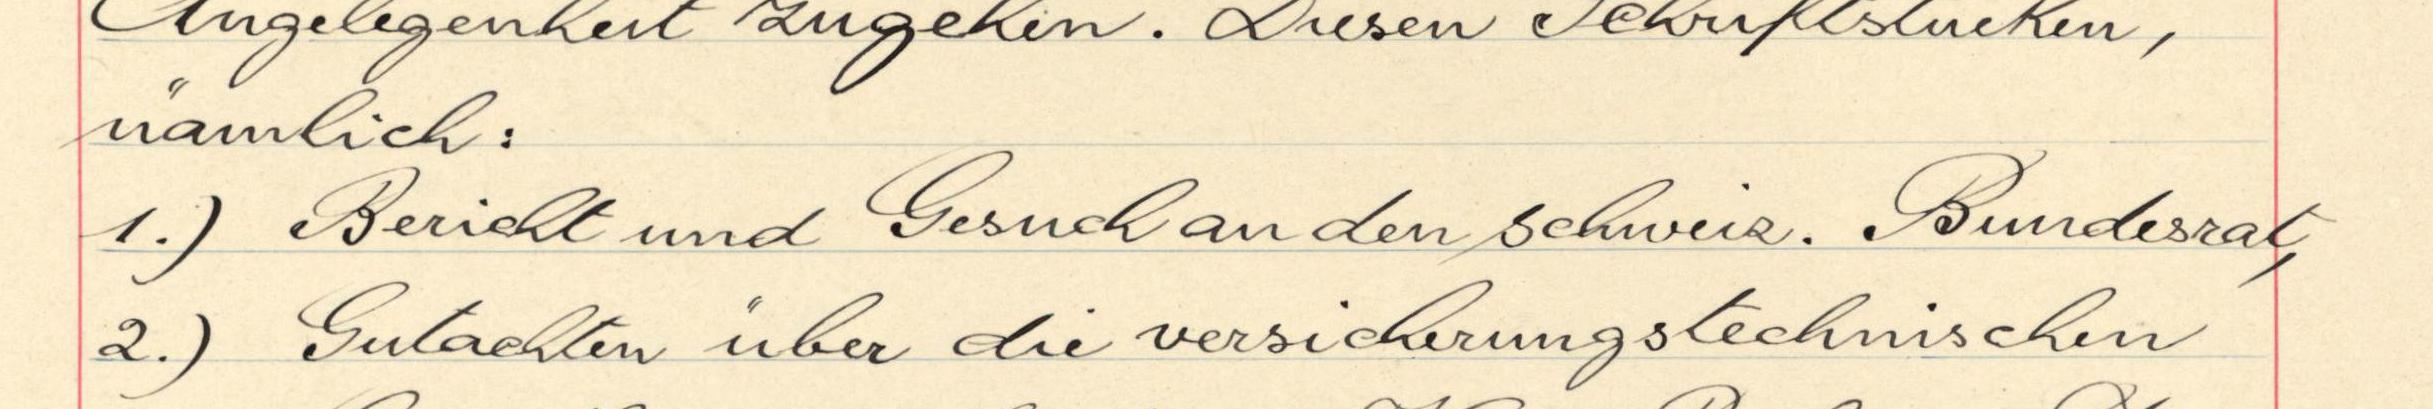 Angelegenheit zugehen. Diesen Schriftstücken,
nämlich:
1.) Bericht und Gesuch an den schweiz. Bundesrat,
2.) Gutachten über die versicherungstechnischen